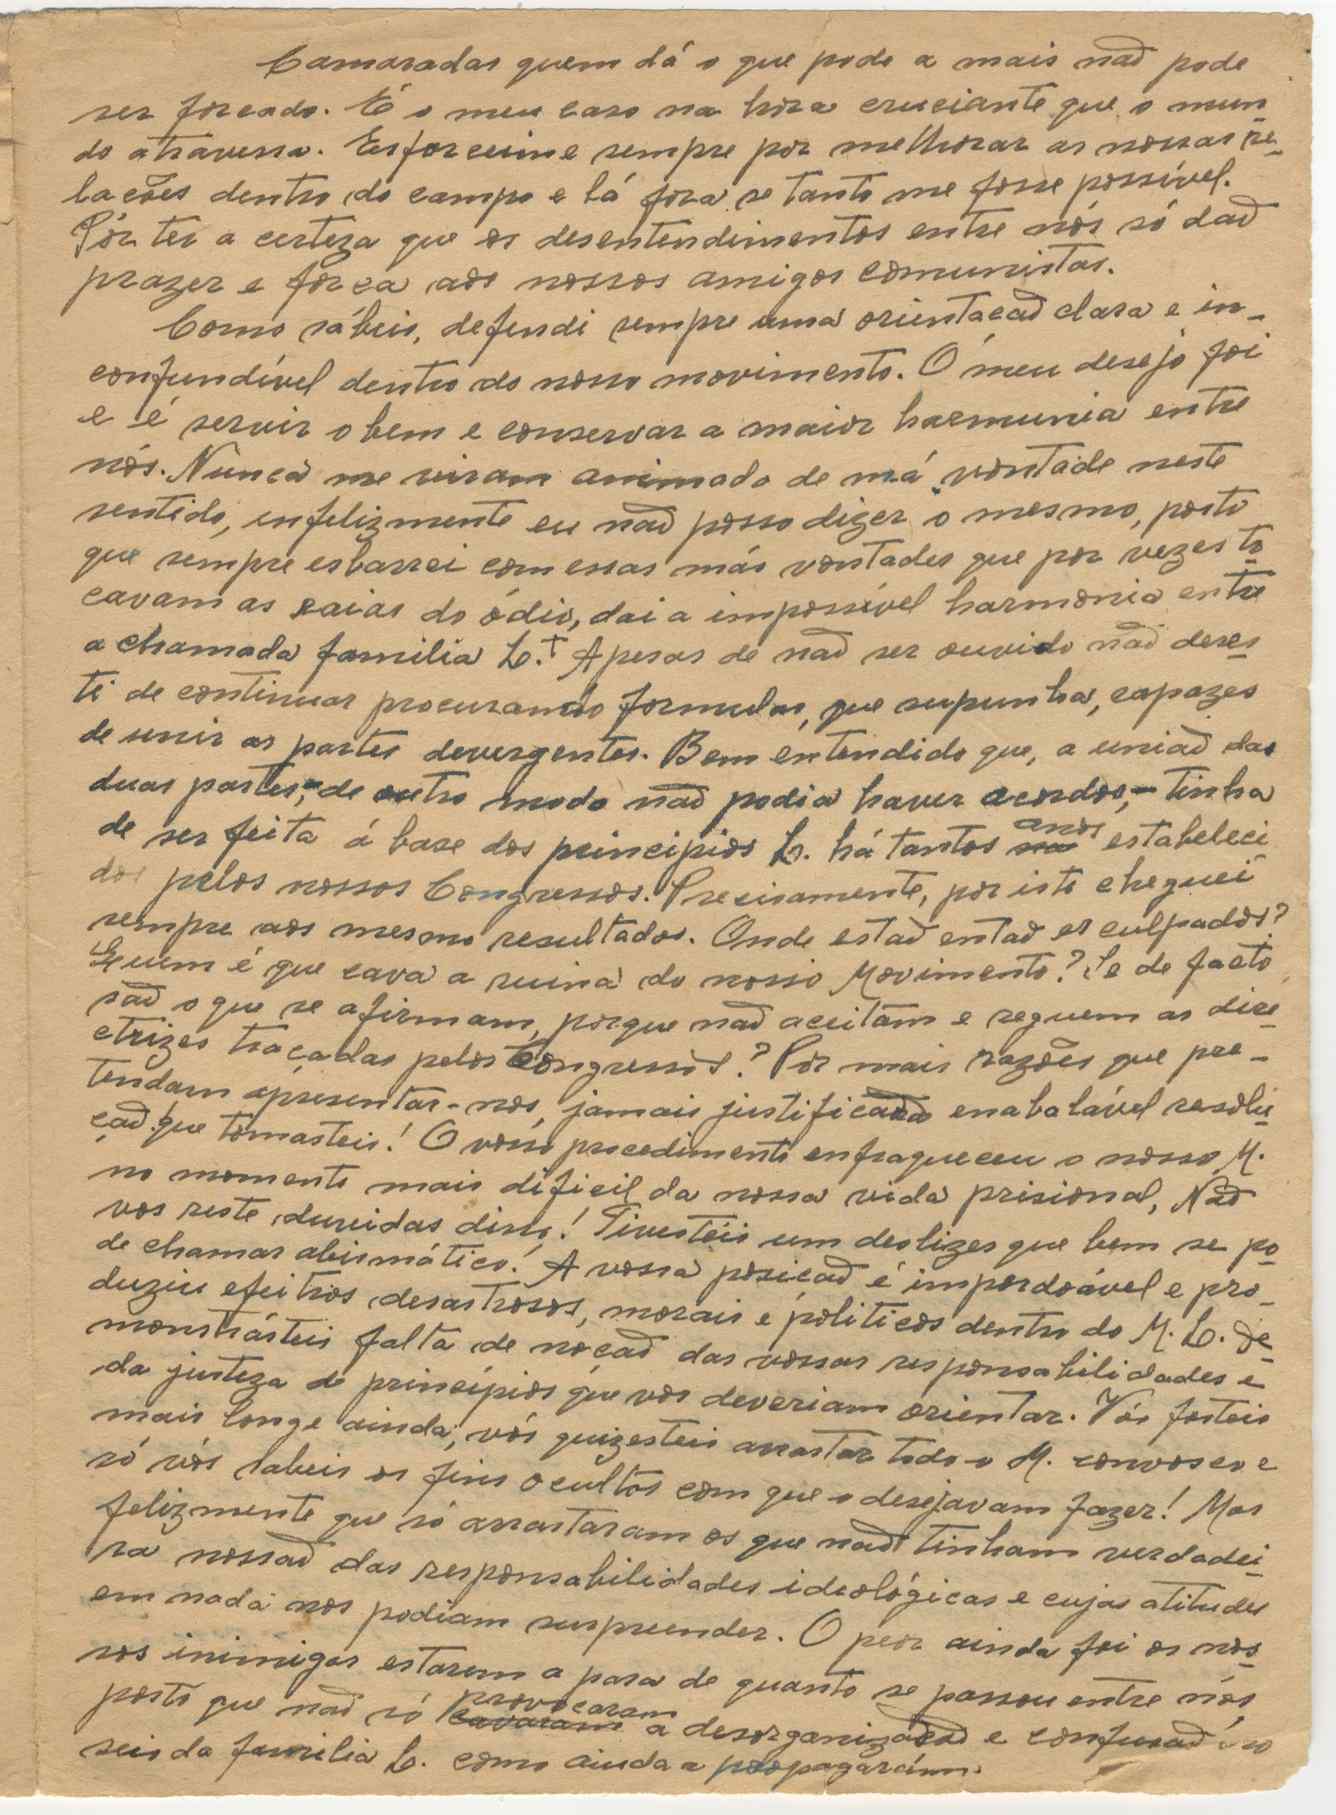 Camaradas quem dá o que pode a mais naõ pode
ser forcado. É o meu caso na hora cruciante que o mun-
do atravessa. Esforceime sempre por melhorar as nossas re-
lacões dentro do campo e lá fora se tanto me fosse possível.
Pór ter a certeza que os desentendimentos entre nós só daõ
prazer e forca aos nossos amigos comunistas.
Como sábeis, defendi sempre uma orientacaõ clara e in-
confundível dentro do nosso movimento. O meu desejo foi
e é servir o bem e conservar a maior harmunia entre
nós. Nunca me viram animado de má vontade neste
sentido, infelizmente eu naõ posso dizer o mesmo, posto
que sempre esbarrei com essas más vontades que por vezes to-
cavam as raias do ódio, dai a impossível harmonia entre
a chamada familia L.ᵗ Apesar de naõ ser ouvido naõ deses-
ti de continuar procurando formulas, que supunha, capazes
de unir as partes devergentes. Bem entendido que, a uniaõ das
duas partes,-de outro modo naõ podia haver acordos,- tinha
de ser feita á base dos principios L. há tantos anos estabeleci
dos pelos nossos Congressos. Precisamente, por isto cheguei
sempre aos mesmo resultados. Onde estaõ entaõ os culpados?
Quem é que cava a ruina do nosso Movimento? Se de facto
saõ o que se afirmam, porque naõ aceitam e seguem as dire-
ctrizes tracadas pelos Congressos? Pór mais razões que pre-
tendam apresentar-nos, jamais justificada enabalável resolu-
çaõ que tomasteis! O vosso procedimento enfraqueceu o nosso M.
no momento mais dificil da nossa vida prisional, Naõ
vos reste duvidas disso! Tivesteis um deslizes que bem se po
de chamar abismático! A vossa posicaõ é imperdoável e pro-
duziu efeitros desastrosos, morais e politicos dentro do M. L. De-
monstrásteis falta de nocaõ das vossas responsabilidades e
da justeza de princípios que vos deveriam orientar. Vós fosteis
mais longe ainda, vós quizesteis arrastar todo o M. convosco e
só vós sabeis os fins ocultos com que o desejavam fazer! Mas
felizmente que só arrastaram os que naõ tinham verdadei-
ra nossaõ das responsabilidades ideológicas e cujas atitudes
em nada nos podiam surpreender. O peor ainda foi os nos-
sos inimigos estarem a para de quanto se passou entre nós,
posto que naõ só provocaram a desorganizacaõ e confusaõ no
seio da familia L. como ainda a propagarám.